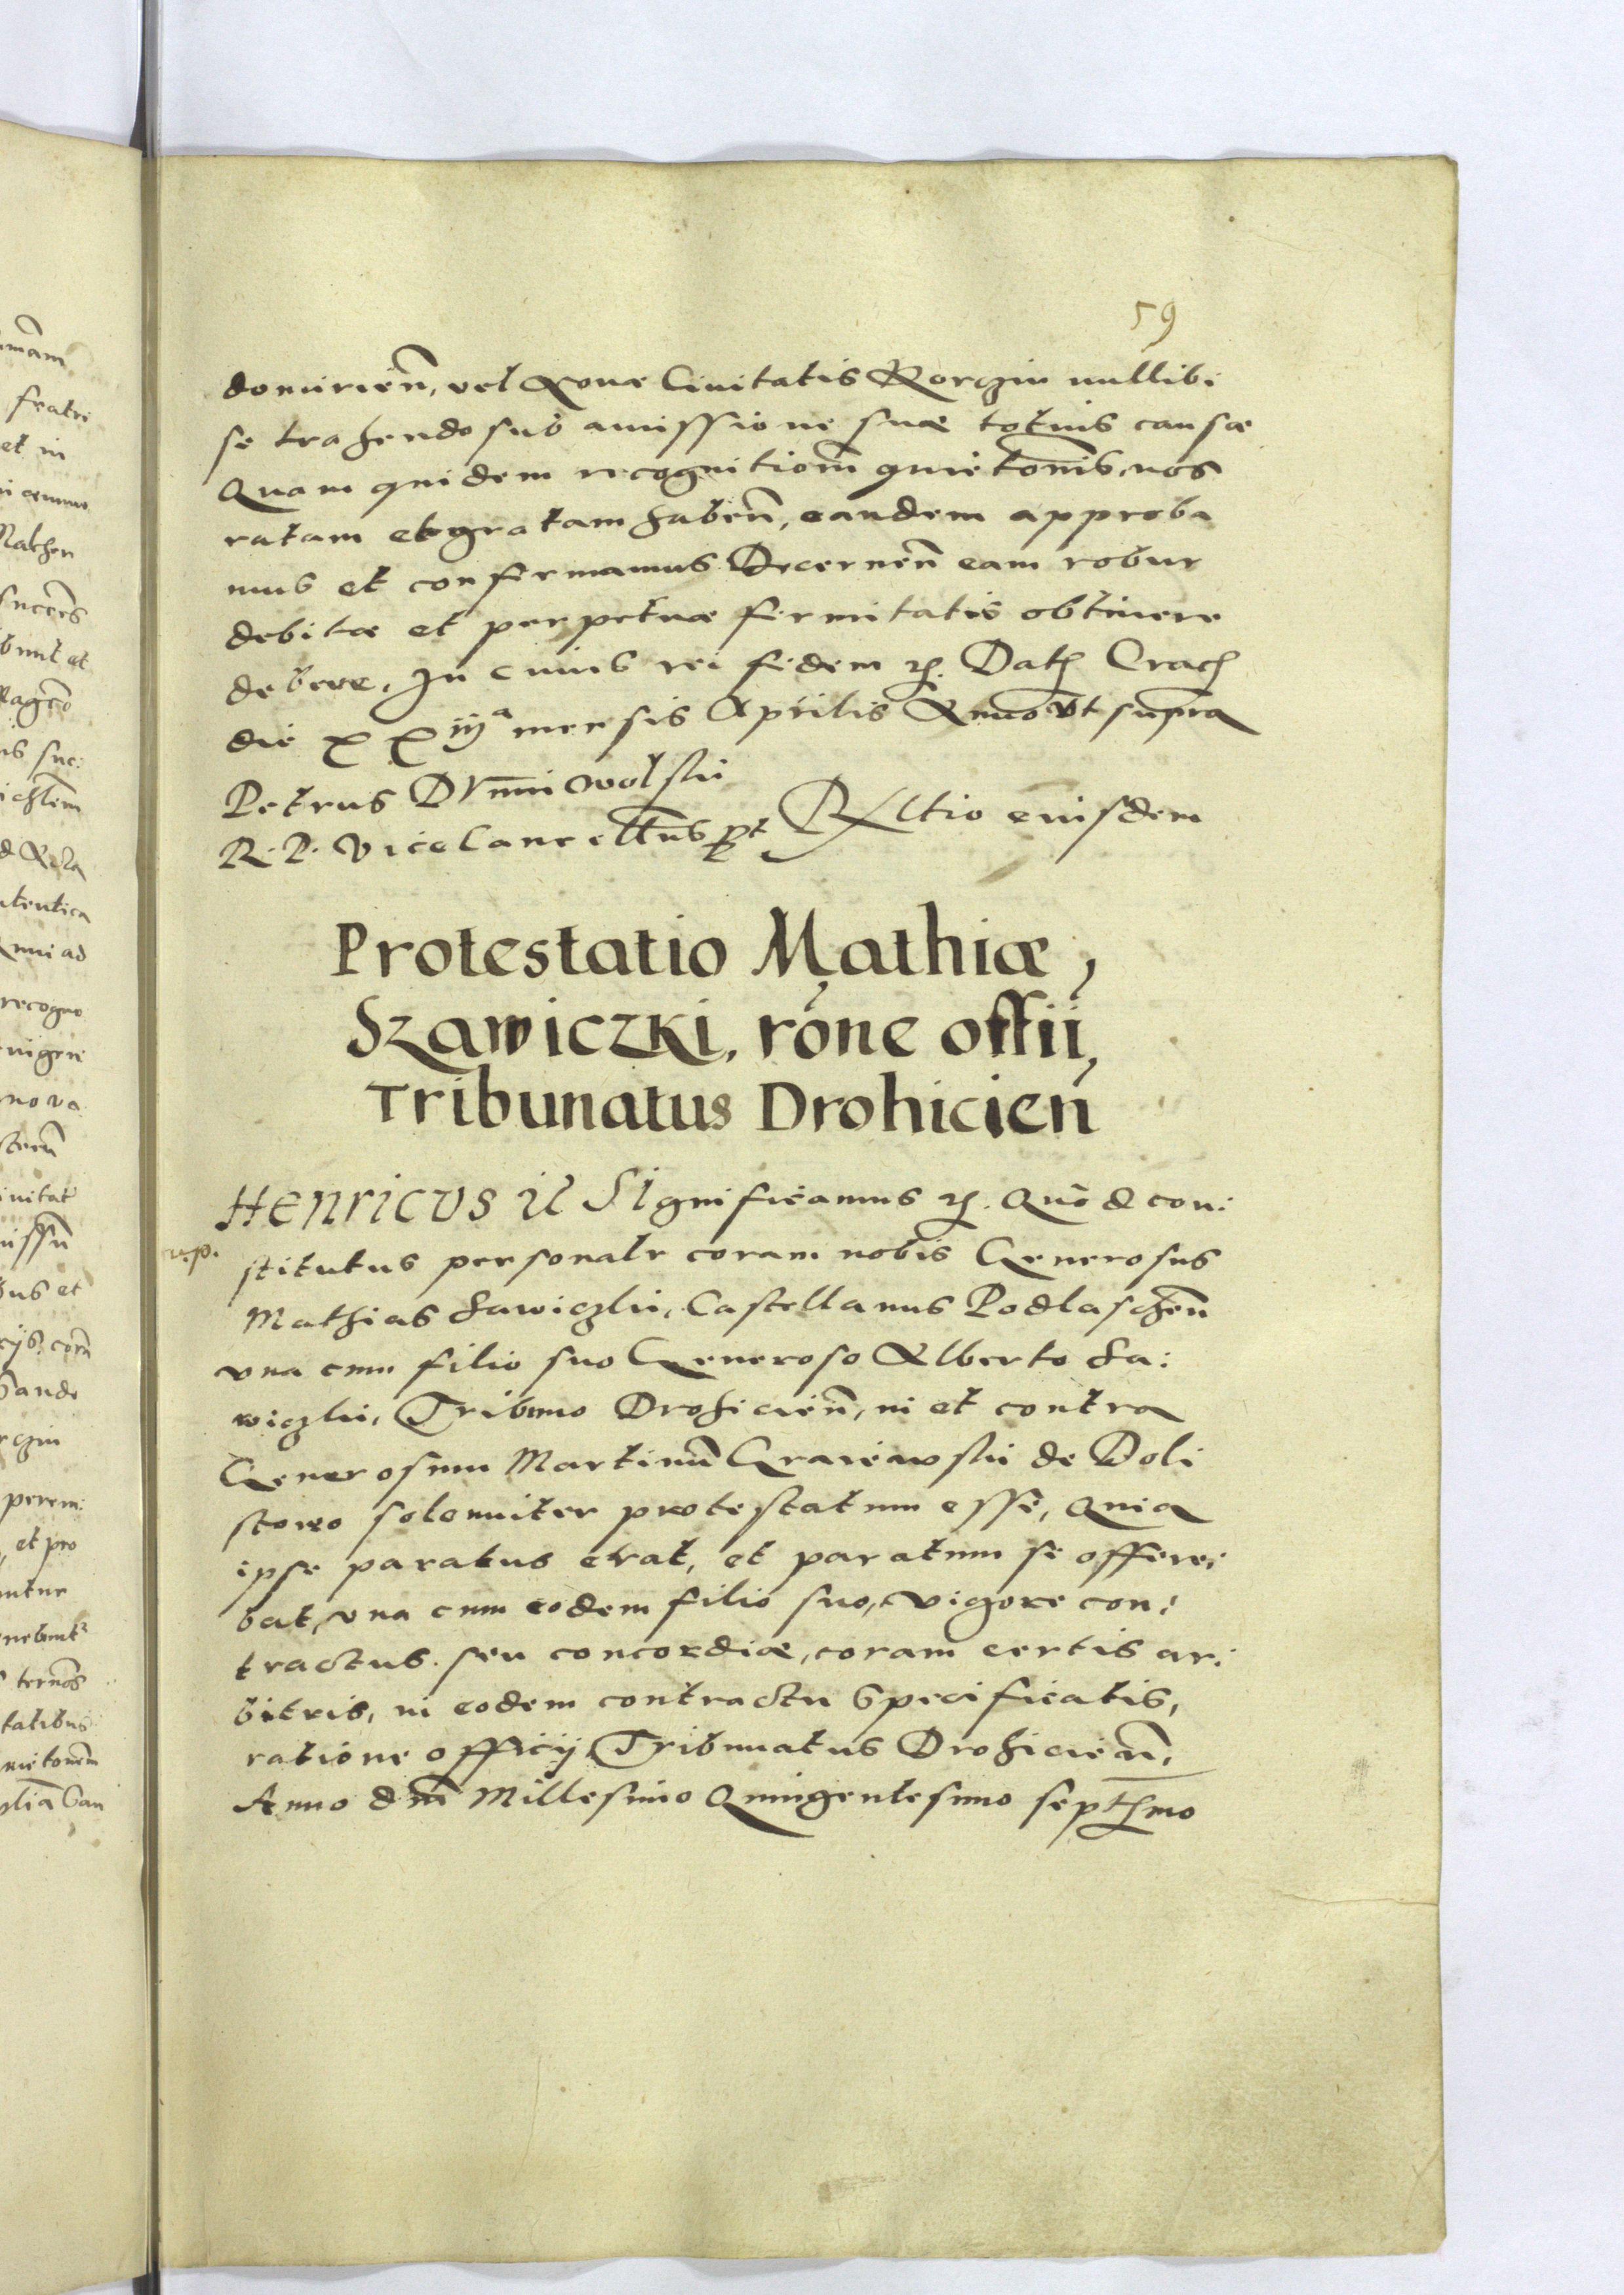 59
domirien̄, vel Nouæ Ciuitatis Korczin nullibi
se trahendo sub amissione suæ totius causæ
Quam quidem recognitiom̄ quietom̄is, nos
ratam et gratam haben̄, eandem approba
mus et confirmamus Decernen̄ eam robur
debitæ et perpetuæ firmitatis obtinere
debere, In cuius rei fidem ꝛc. Dat Crac
die XXiijª mensis Aprilis Anno vt supra
Petrus Dunni Wolski
R. P. Vicecancellr̄us pt Rltio eiusdem
Protestatio Mathiæ,
Szawiczki, rōne offii,
Tribunatus Drohicien
HENRICVS ꝛc Significamus ꝛc. Quod con:
v.p.
stitutus personalr coram nobis Generosus
Mathias Sawiczki, Castellanus Podlaschen̄
vna cum filio suo Generoso Alberto Sa:
wiczki, Tribuno Drohicien̄, in et contra
Generosum Martinū Graiewski de Doli
stowo solenniter protestatum esse, quia
ipse paratus erat, et paratum se offere:
bat, vna cum eodem filio suo, vigore con:
tractus seu concordiæ, coram certis ar:
bitris, in eodem contractu specificatis,
ratione officij Tribunatus Drohicien̄,
Anno dn̄i Millesimo Quingentesimo septmo